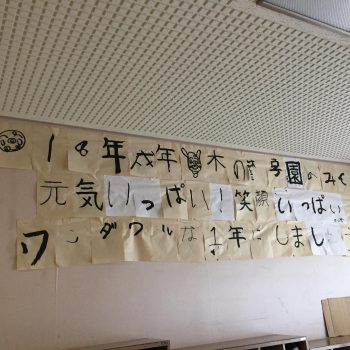 18年戌年木の育園のみく
元気いっぱい！笑顔いっぱい
ワンダフルな1年にしましょ